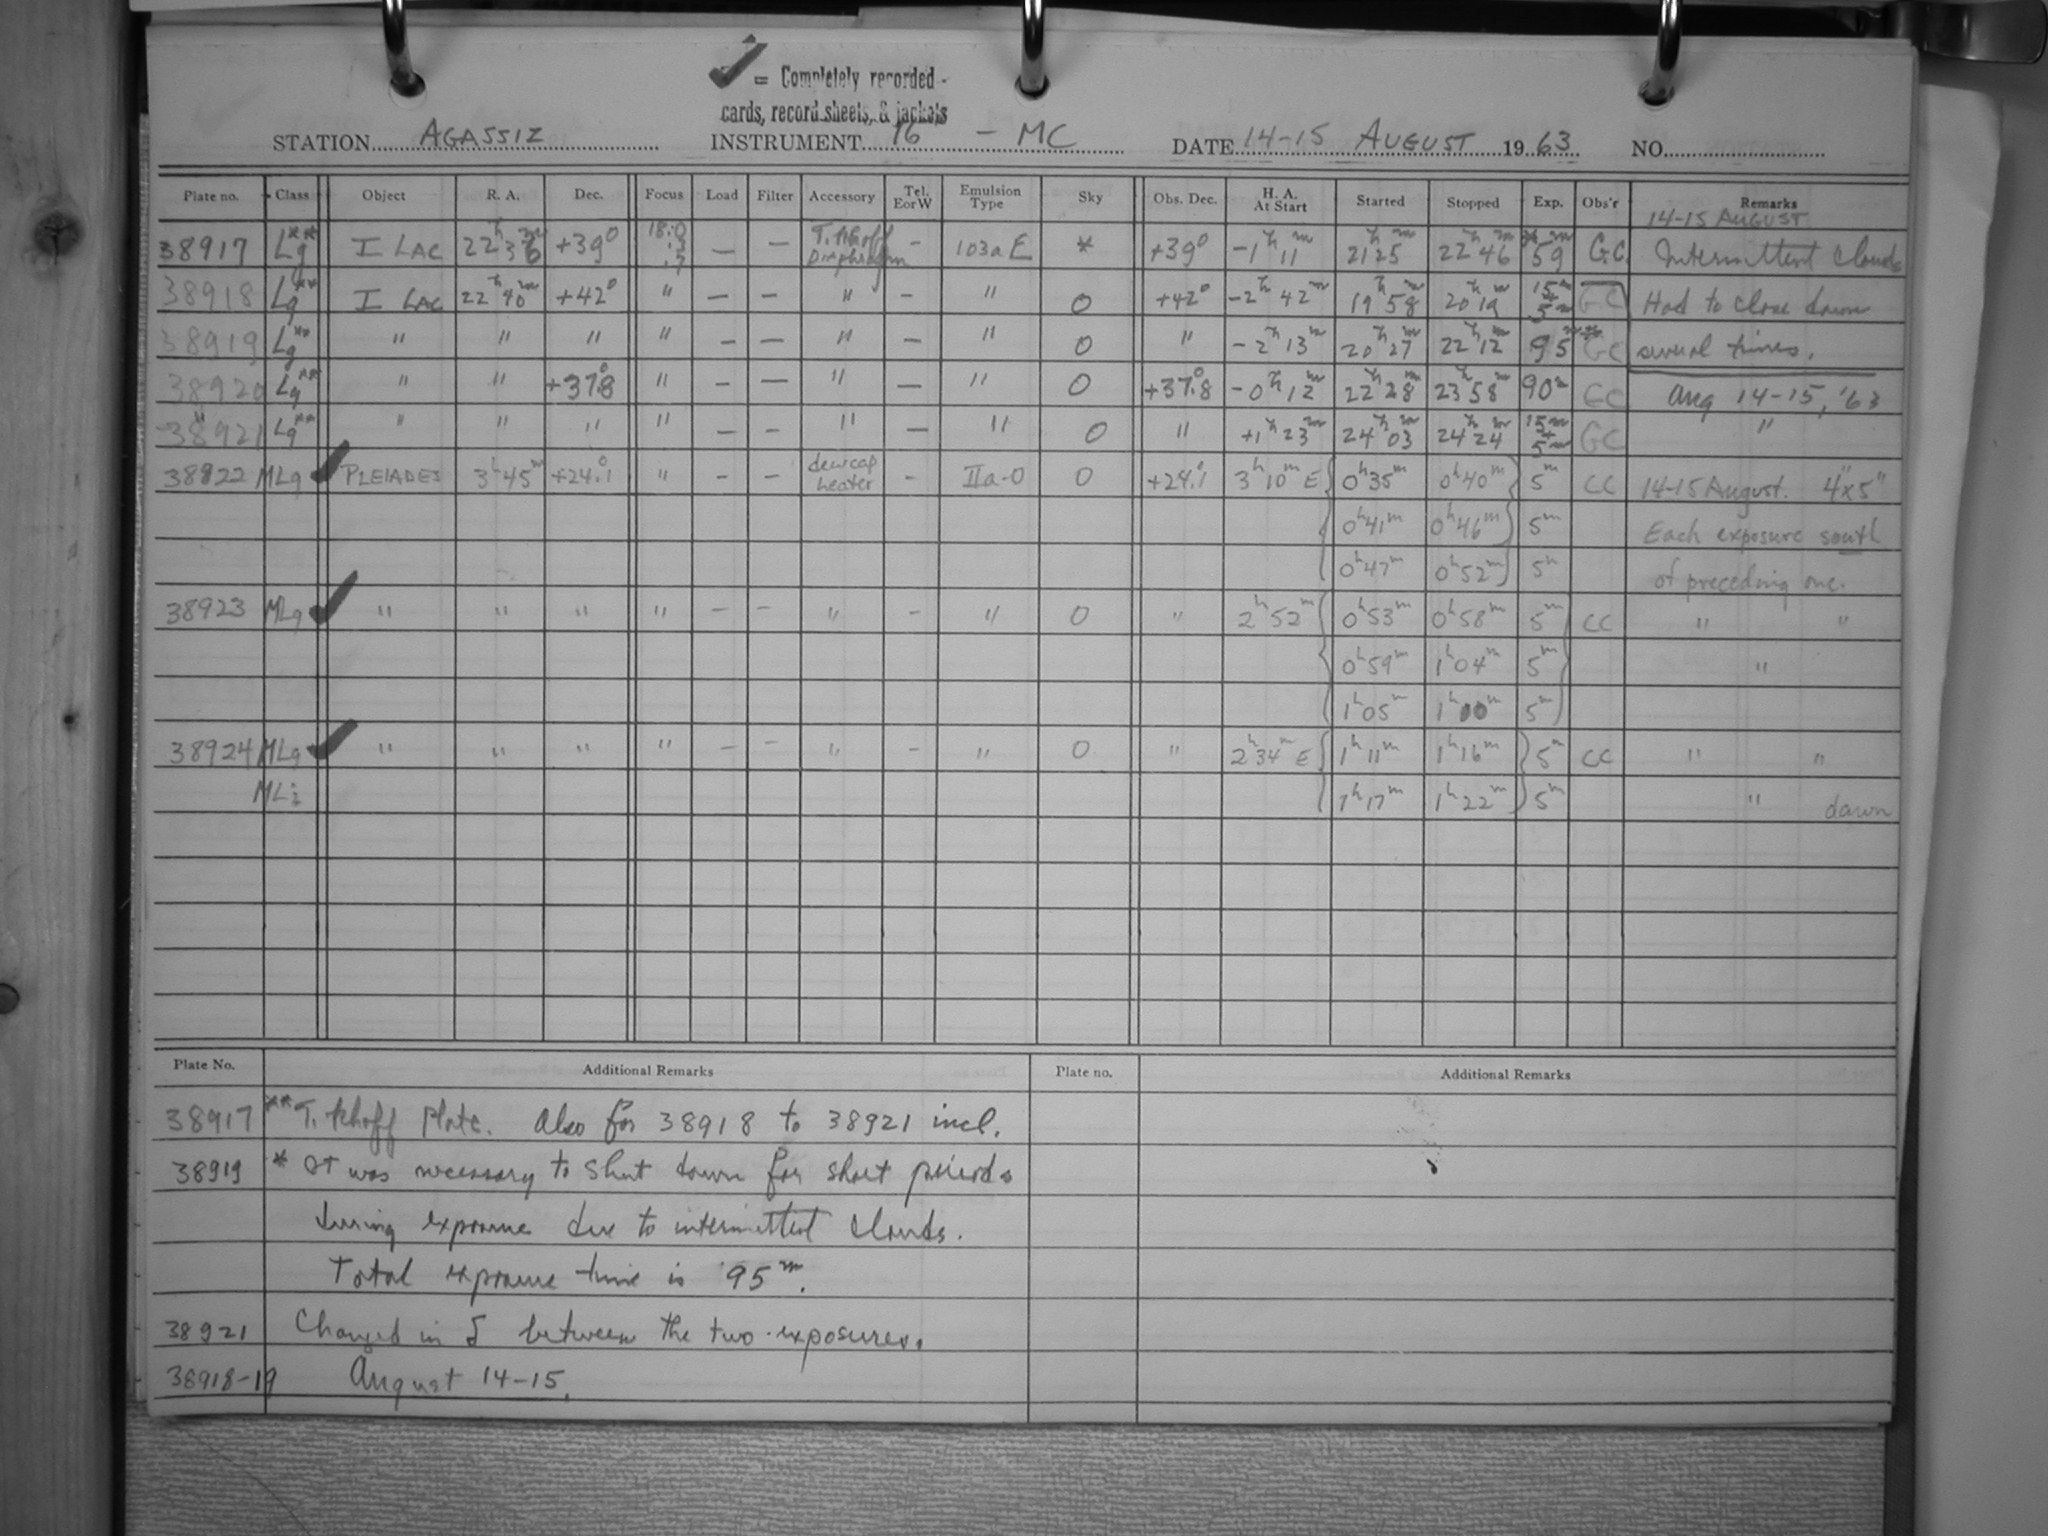 ✓ = Completely recorded -
cards, record sheets, & jackets
STATION AGASSIZ INSTRUMENT 16 - MC DATE 14-15 AUGUST 19 63 NO.
Plate no. Class Object R. A. Dec. Focus Load Filter Accessory Tel. E or W Emulsion Type Sky Obs. Dec. H. A. At Start Started Stopped Exp. Obs'r Remarks
14-15 AUGUST
38917 Lg** I LAC 22h 36m +39° 18.0 .3 .7 — — Diaphragm - 103a E * +39° -1h 11m 21h 25m 22h 46m 59m GC Intermittent clouds
38918 Lg** I LAC 22h 40m +42° " — — " - " O +42° -2h 42m 19h 58m 20h 19m 15m + 5m GC Had to close down
38919 Lg** " " " " — — " — " O " -2h 13m 20h 27m 22h 12m 95m** GC several times.
38920 Lg** " " +37.°8 " — — " — " O +37.°8 -0h 12m 22h 28m 23h 58m 90m GC Aug 14-15, '63
38921 Lg** " " " " — — " — " O " +1h 23m 24h 03m 24h 24m 15m + 5m GC "
38922 MLg ✓ PLEIADES 3h 45m +24.°1 " - - dewcap heater - IIa-O O +24.°1 3h 10m E { 0h 35m 0h 40m } 5m CC 14-15 August. 4"x5"
{ 0h 41m 0h 46m } 5m Each exposure south
( 0h 47m 0h 52m ) 5m of preceding one.
38923 MLg ✓ " " " " - - " - " O " 2h 52m { 0h 53m 0h 58m 5m CC " "
{ 0h 59m 1h 04m 5m "
( 1h 05m 1h 5m )
38924 MLg ✓ " " " " - - " - " O " 2h 34m E { 1h 11m 1h 16m } 5m CC " "
MLi { 1h 17m 1h 22m } 5m " dawn
Plate No. Additional Remarks Plate no. Additional Remarks
38917 ** Plate. Also for 38918 to 38921 incl.
38919 * It was necessary to shut down for short periods
during exposure due to intermittent clouds.
Total exposure time is 95m.
38921 Changed in δ between the two exposures.
38918-19 August 14-15.